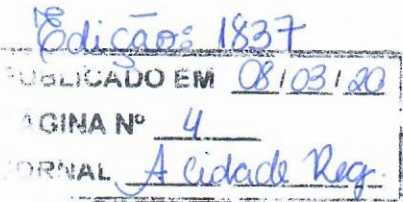 Edição: 1837
PUBLICADO EM 08/03/20
PÁGINA Nº 4
JORNAL A cidade Reg.